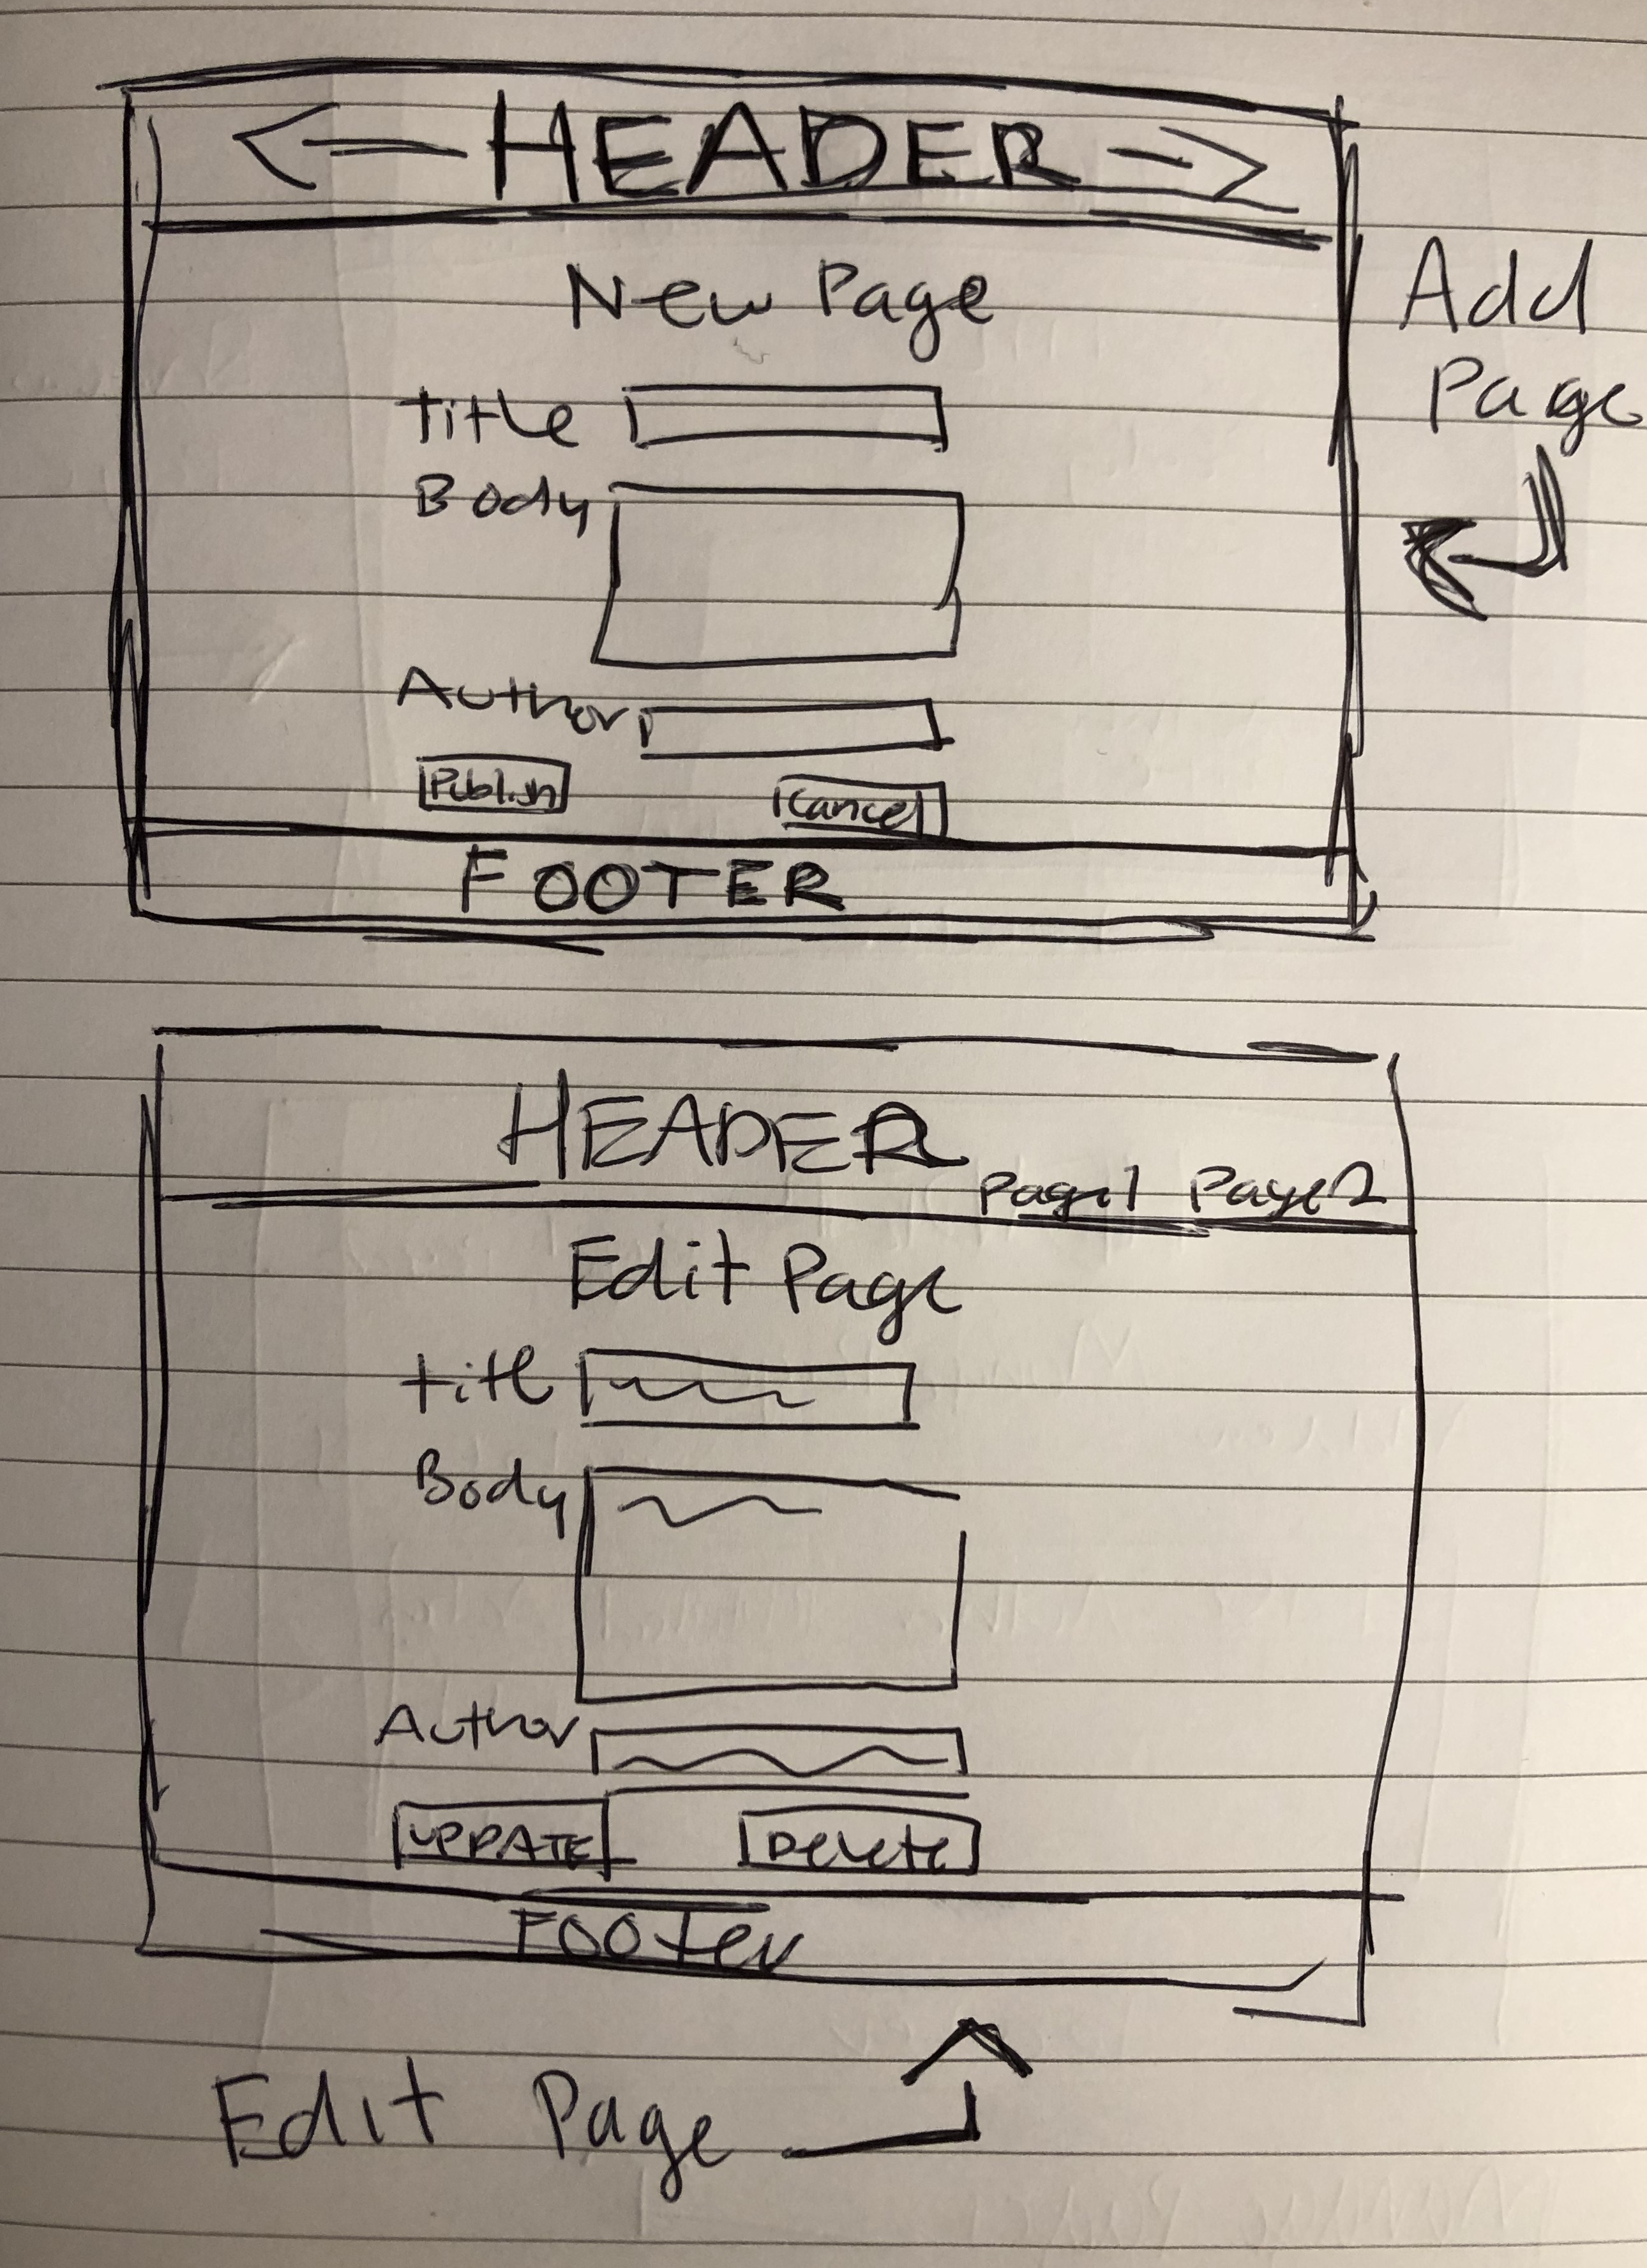 HEADER
New Page
Title
Body
Author
Publish Cancel
FOOTER
Add
Page
HEADER
Page1 Page2
Edit Page
title
Body
Author
UPDATE Delete
Footer
Edit Page